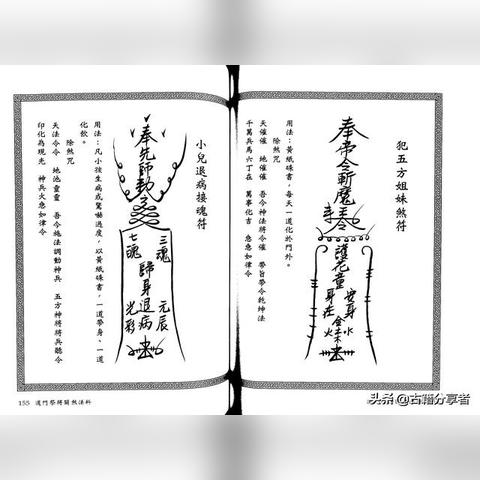 犯五方姐妹煞符
奉帝令斬魔
護花童
安身
身在
金木水火
用法：黃紙硃書，每天一道化於門外。
除煞咒
天催催　地催催　吾令神法將令催　勞旨帶令乾坤法
千萬兵馬六丁在　萬事化吉　急急如律令
小兒退病接魂符
奉先師勅令
三魂
七魄
歸身退病
元辰
光彩
用法：凡小孩生病或驚嚇過度，以黃紙硃書，一道帶身、一道
化飲。
除煞咒
天法令令　地池重重　吾令施法調動神兵　五方神將將兵聽令
印化為現光　神兵火急如律令
155 道門祭將關煞法科
头条@古籍分享者